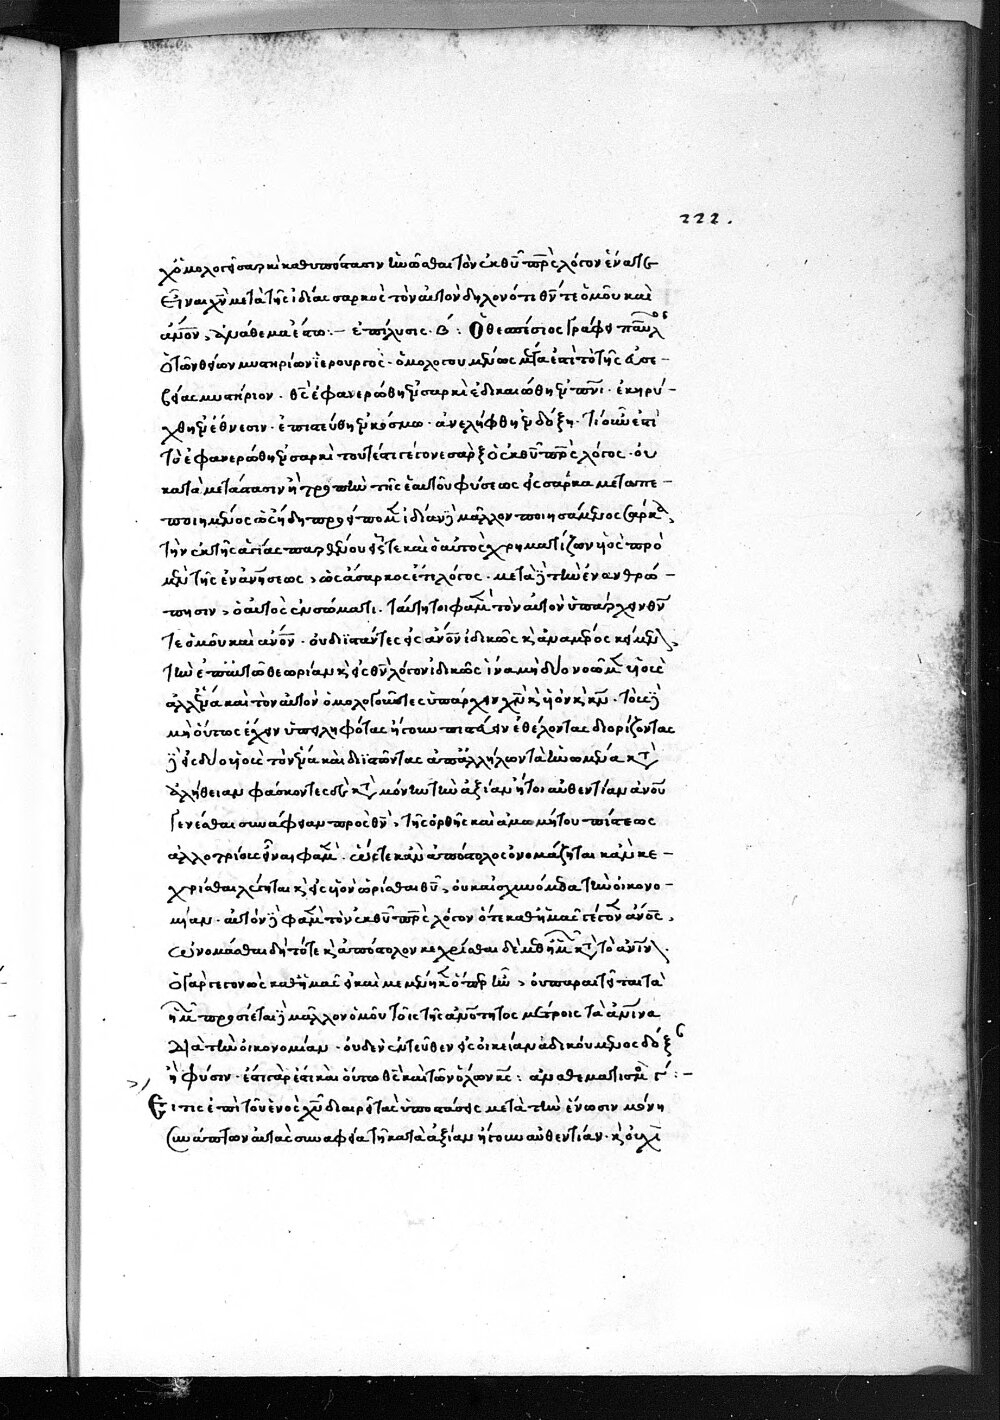 χ ὁμολογεῖ σαρκὶ καθυπόστασιν ἡνῶσθαι τὸν ἐκ θῦ πρς λόγον ἕνα τε
εἶναι χν μετὰ τῆς ἰδίας σαρκὸς τὸν αὐτὸν δηλονότι θν τε ὁμοῦ καὶ
ἄνον, ἀνάθεμα ἔστω :– ἐπίλυσις · β΄ : Ὁ θεσπέσιος γράφει παῦλος
ὁ τῶν θείων μυστηρίων ἱερουργός · ὁμολογουμένως μέγα ἐστὶ τὸ τῆς εὐσε–
βείας μυστήριον · θς ἐφανερώθη ἐν σαρκὶ ἐδικαιώθη ἐν πνι · ἐκηρύ–
χθη ἐν ἔθνεσιν · ἐπιστεύθη ἐν κόσμω · ἀνελήφθη ἐν δόξη · τί οὖν ἐστὶ
τὸ ἐφανερώθη ἐν σαρκὶ τουτέστι γέγονε σὰρξ ὁ ἐκ θῦ πρς λόγος · οὐ
κατὰ μετάστασιν ἢ τροπὴν τῆς ἑαυτοῦ φύσεως εἰς σάρκα μεταπε–
ποιημένος ὡς ἤδη προείπομεν ἰδίαν δὲ μᾶλλον ποιησάμενος σάρκα,
τὴν ἐκ τῆς ἁγίας παρθένου εἷς τε καὶ ὁ αὐτὸς χρηματίζων υἱὸς πρὸ
μὲν τῆς ἐνανήσεως, ὡς ἄσαρκος ἔτι λόγος · μετὰ δὲ τὴν ἐνανθρώ–
πησιν, ὁ αὐτὸς ἐν σώματι · ταύτητοι φαμὲν τὸν αὐτὸν ὑπάρχειν θν
τε ὁμοῦ καὶ ἄνον · οὐ διϊστάντες εἰς ἄνον ἰδικῶς κ ἀναμέρος κείμενον,
τὴν ἐπ αὐτῶ θεωρίαν κ εἰς θν λόγον ἰδικῶς ἵνα μὴ δύο νοῶμεν υἱοὺς
ἀλλ ἕνα καὶ τὸν αὐτὸν ὁμολογοῦντες ὑπάρχειν χν κ υἱὸν κ κν · τοὺς δὲ
μὴ οὕτως ἔχειν ὑπειληφότας ἤγουν πιστεύειν ἐθέλοντας διορίζοντας
δὲ εἰς δύο υἱοὺς τὸν ἕνα καὶ διϊστῶντας ἀπαλλήλων τὰ ἡνωμένα κατὰ
ἀλήθειαν φάσκοντές τε κατὰ μόνην τὴν ἀξίαν ἤτοι αὐθεντίαν ἀνου
γενέσθαι συνάφειαν πρὸς θν, τῆς ὀρθῆς καὶ ἀμωμήτου πίστεως
ἀλλοτρίους εἶναι φαμέν · ὥστε κἂν ἀπόστολος ὀνομάζηται κἂν κε–
χρίσθαι λέγηται κ εἰς υἱὸν ὡρίσθαι θῦ, οὐκ αἰσχυνόμεθα τὴν οἰκονο–
μίαν · αὐτὸν δὲ φαμὲν τὸν ἐκ θῦ πρς λόγον ὅτε καθ ἡμᾶς γέγονεν ἄνος,
ὠνομάσθαι δὴ τότε κ ἀπόστολον κεχρίσθαι δὲ μεθ ἡμῶν κατὰ τὸ ἀνινον.
ὁ γὰρ γεγονὼς καθ ἡμᾶς εἰ καὶ μεμένηκεν ὅπερ ἦν, οὐ παραιτεῖται τὰ
ἡμῶν προσίεται δὲ μᾶλλον ὁμοῦ τοῖς τῆς ἀνότητος μέτροις τὰ ἀνινα
διὰ τὴν οἰκονομίαν · οὐδὲν ἐντεῦθεν εἰς οἰκείαν ἀδικούμενος δόξαν
ἢ φύσιν · ἔστι γάρ ἐστι καὶ οὕτω θς καὶ τῶν ὅλων κς : ἀναθεματισμὸς γ΄ : –
Εἴ τις ἐπὶ τοῦ ἑνὸς χῦ διαιρεῖ τὰς ὑποστάσεις μετὰ τὴν ἕνωσιν μόνη
συνάπτων αὐτὰς συναφεία τῆ κατὰ ἀξίαν ἤγουν αὐθεντίαν · κ οὐχὶ